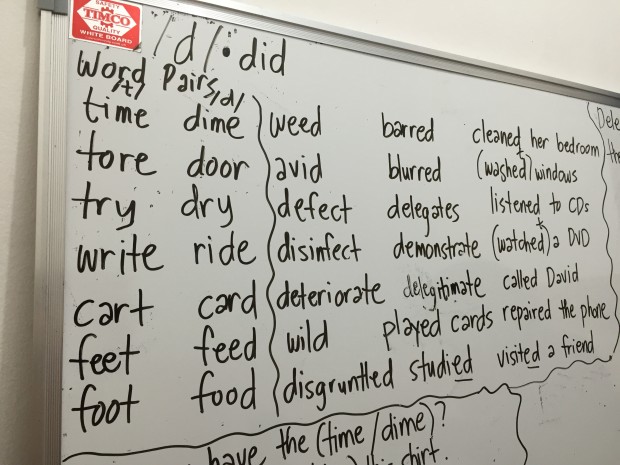 SAFETY
TIMCO
QUALITY
WHITE BOARD
/d/ • did
Word Pairs
/t/ /d/
time dime weed barred cleaned her bedroom
tore door avid blurred (washed) windows
try dry defect delegates listened to CDs
write ride disinfect demonstrate (watched) a DVD
cart card deteriorate delegitimate called David
feet feed wild played cards repaired the phone
foot food disgruntled studied visited a friend
Dele
the
have the (time/dime)?
shirt.